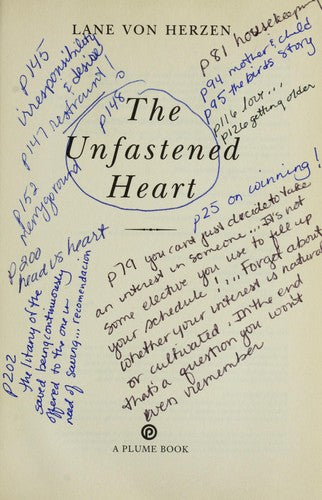 LANE VON HERZEN
p81 housekeeping
p94 mother & child
p95 the birds story
p116 love...
p126 getting older
p145
irresponsibility
& desire
p147 restraint!
p148
The
Unfastened
Heart
p152
merrygoround
p200
head vs heart
p25 on winning!
p79 you can't just decide to take
an interest in someone... It's not
some elective you use to fill up
your schedule!... Forget about
whether your interest is natural
or cultivated. In the end
that's a question you won't
even remember
p202
the litany of the
saved being continuously
offered to the one in
need of saving... recomendacion
A PLUME BOOK